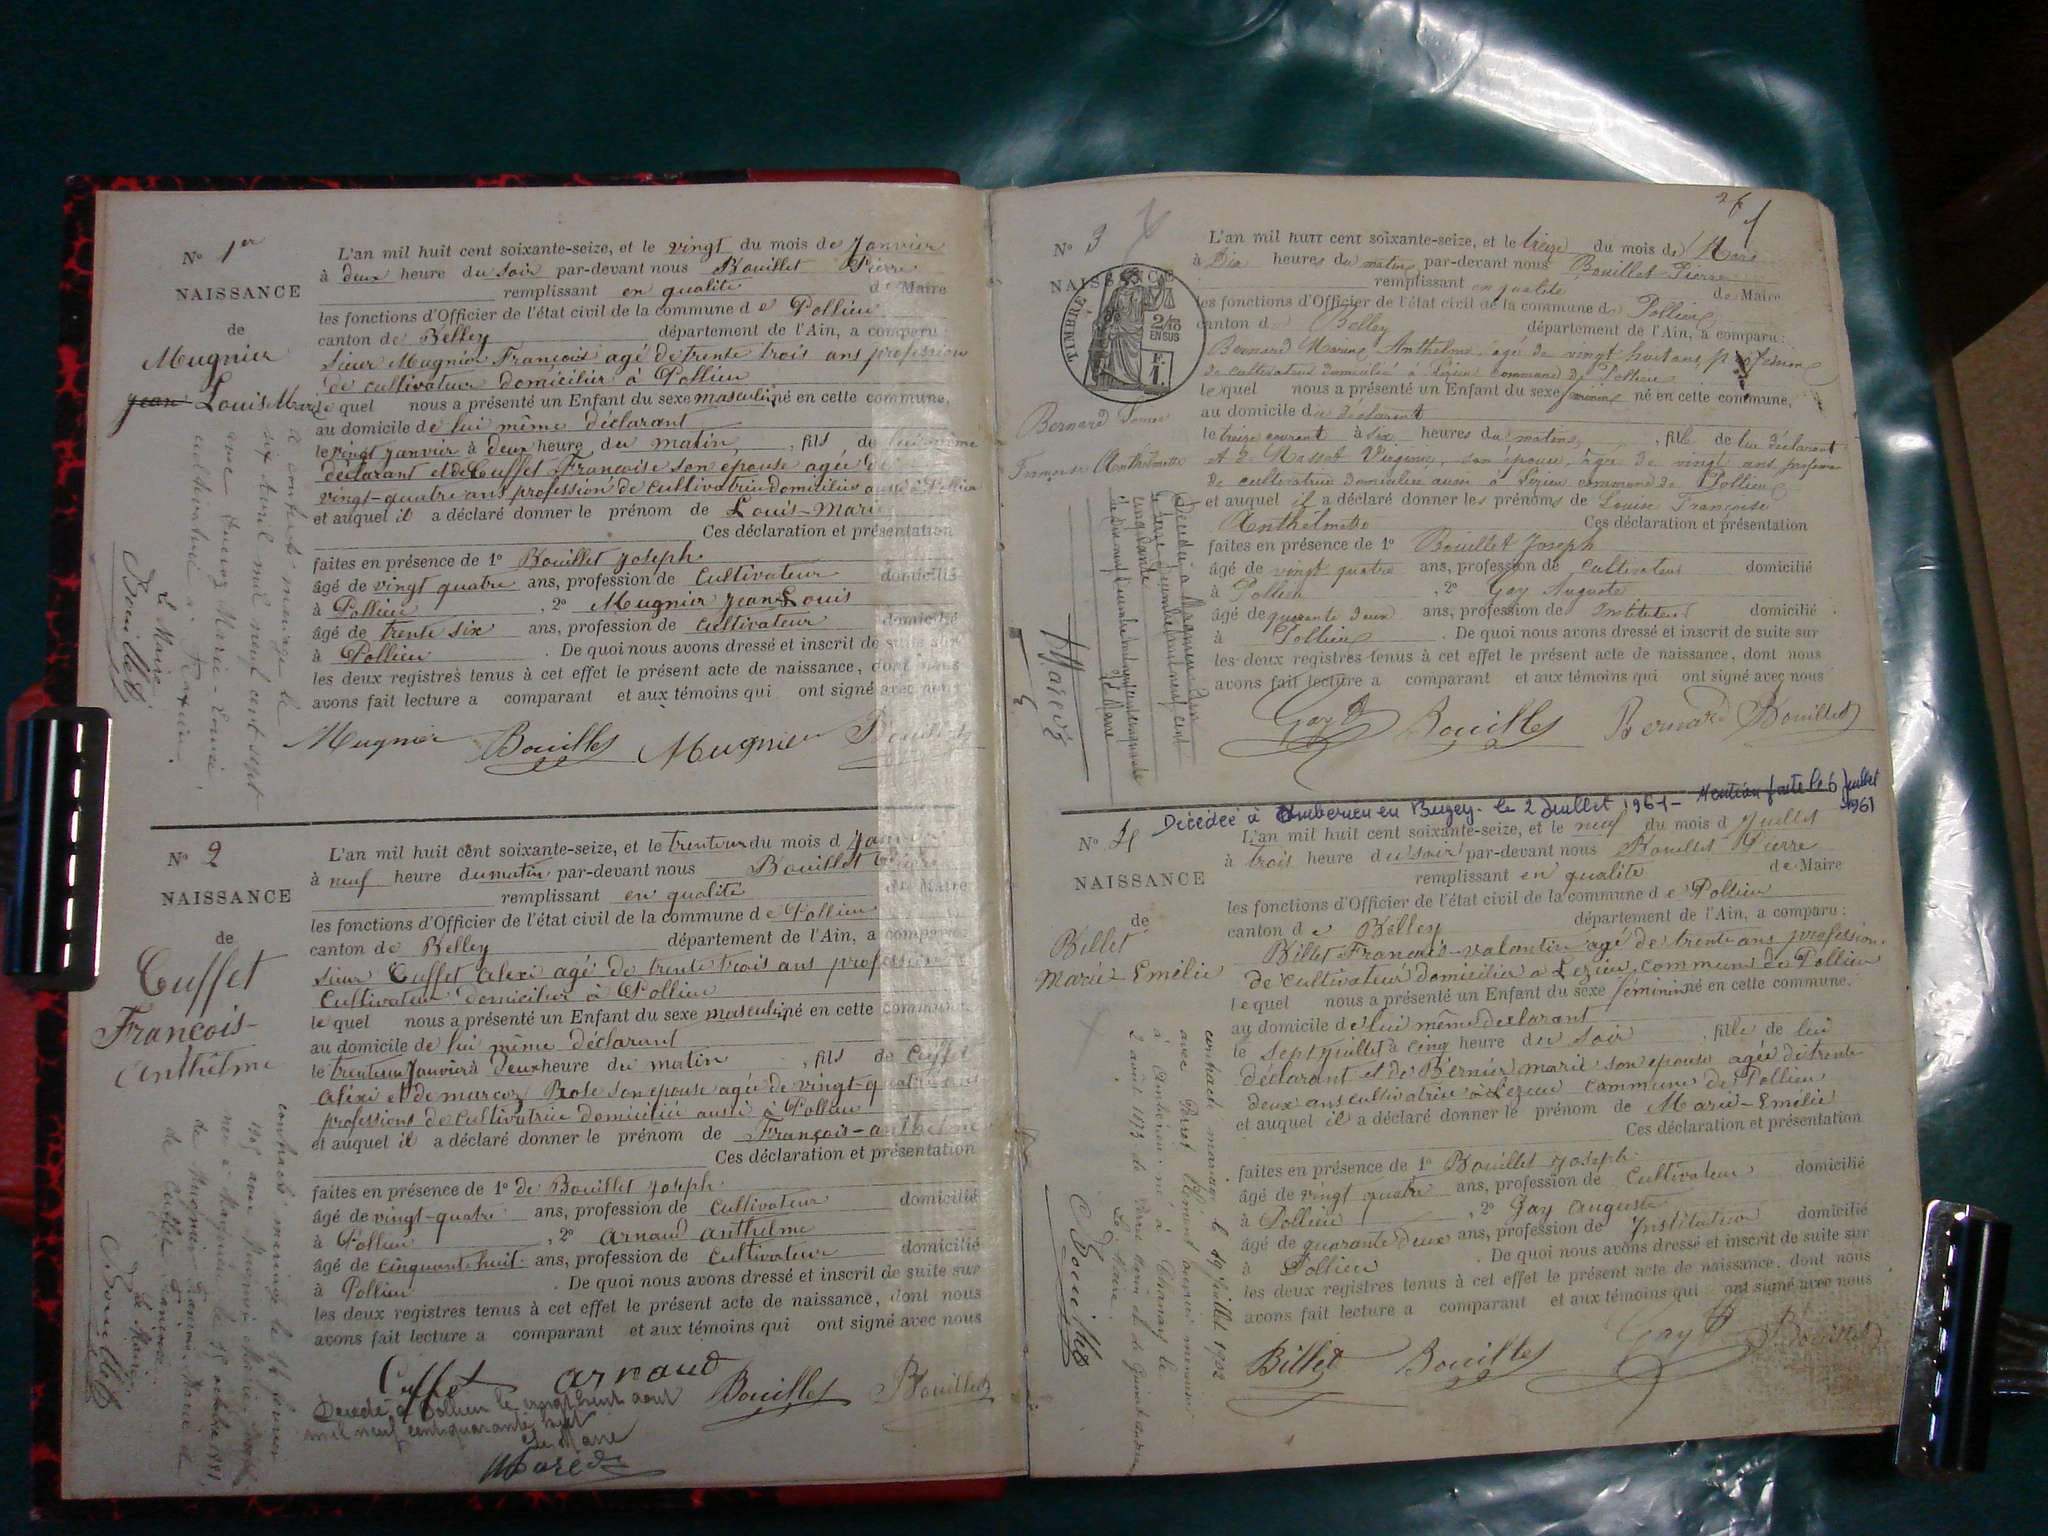 N° 1er
NAISSANCE
de
Mugnier
Jean Louis Marie
L'an mil huit cent soixante-seize, et le vingt du mois de Janvier
à deux heure du soir par-devant nous Bouillet Pierre
remplissant en qualité de Maire
les fonctions d'Officier de l'état civil de la commune d e Pollieu
canton de Belley département de l'Ain, a comparu :
Sieur Mugnier François agé de trente trois ans profession
de cultivateur domicilier à Pollieu
le quel nous a présenté un Enfant du sexe masculin né en cette commune,
au domicile de lui même déclarant
le vingt janvier à deux heure du matin, fils de lui même
déclarant et de Cuffet Françoise son epouse agée de
vingt-quatre ans profession de cultivatrice domicilier aussi à Pollieu
et auquel il a déclaré donner le prénom de Louis-Marie
Ces déclaration et présentation
faites en présence de 1° Bouillet Joseph
âgé de vingt quatre ans, profession de Cultivateur domicilié
à Pollieu, 2° Mugnier Jean Louis
âgé de trente six ans, profession de cultivateur domicilié
à Pollieu. De quoi nous avons dressé et inscrit de suite sur
les deux registres tenus à cet effet le présent acte de naissance, dont nous
avons fait lecture a comparant et aux témoins qui ont signé avec nous
Mugnier Bouillet Mugnier Bouillet
a contracté mariage le
six Avril mil neuf cent sept
avec Marie-Louise,
cultivatrice à
Le Maire
Bouillet
N° 2
NAISSANCE
de
Cuffet
François-
Anthelme
L'an mil huit cent soixante-seize, et le trente un du mois d Janvier
à neuf heure du matin par-devant nous Bouillet Pierre
remplissant en qualité de Maire
les fonctions d'Officier de l'état civil de la commune d e Pollieu
canton de Belley département de l'Ain, a comparu
Sieur Cuffet Alexi agé de trente trois ans profession
Cultivateur domicilier à Pollieu
le quel nous a présenté un Enfant du sexe masculin né en cette commune
au domicile de lui même déclarant
le trente un Janvier à Deux heure du matin, fils de Cuffet
Alexi et de marcoz Rose son epouse agée de vingt-quatre ans
professions de cultivatrice domiciliée aussi à Pollieu
et auquel il a déclaré donner le prénom de François-anthelme
Ces déclaration et présentation
faites en présence de 1° de Bouillet Joseph
âgé de vingt-quatre ans, profession de Cultivateur domicilié
à Pollieu, 2° Arnaud Anthelme
âgé de cinquant huit ans, profession de Cultivateur domicilié
à Pollieu. De quoi nous avons dressé et inscrit de suite sur
les deux registres tenus à cet effet le présent acte de naissance, dont nous
avons fait lecture a comparant et aux témoins qui ont signé avec nous
Cuffet arnaud Bouillet Bouillet
Décédé à Pollieu le vingt huit aout
mil neuf cent quarante huit
Le Maire
contracté mariage le
1905 avec Mugnier
née à le 15 octobre 1881
de Mugnier François-Marie &
de Cuffet Françoise.
Le Maire
Bouillet
N° 3
NAISSANCE
TIMBRE
2/10
EN SUS
F.
1.
Bernard Louise
Françoise Anthelmette
L'an mil huit cent soixante-seize, et le treize du mois de Mars
à Dix heures du matin par-devant nous Bouillet Pierre
remplissant en qualité de Maire
les fonctions d'Officier de l'état civil de la commune de Pollieu
canton de Belley département de l'Ain, a comparu :
Bernard Anthelme, agé de vingt huit ans, profession
de cultivateur domicilié à Lezieu commune de Pollieu
le quel nous a présenté un Enfant du sexe féminin né en cette commune,
au domicile du déclarant
le treize courant à six heures du matin, fille de lui déclarant
et de Massot Virginie, son épouse, agée de vingt ans profession
de cultivatrice domiciliée aussi à Lezieu commune de Pollieu
et auquel il a déclaré donner les prénoms de Louise Françoise
Anthelmette Ces déclaration et présentation
faites en présence de 1° Bouillet Joseph
âgé de vingt quatre ans, profession de cultivateur domicilié
à Pollieu, 2° Gay Auguste
âgé de quarante deux ans, profession de Instituteur domicilié
à Pollieu. De quoi nous avons dressé et inscrit de suite sur
les deux registres tenus à cet effet le présent acte de naissance, dont nous
avons fait lecture a comparant et aux témoins qui ont signé avec nous
Gay Bouillet Bernard Bouillet
Décédée à
mil neuf cent
cinquante
Le Maire
Décédée à Ambérieu en Bugey le 2 Juillet 1961 - Mention faite le 6 Juillet
1961
N° 4
NAISSANCE
de
Billet
Marie-Emélie
L'an mil huit cent soixante-seize, et le neuf du mois d Juillet
à trois heure du soir par-devant nous Bouillet Pierre
remplissant en qualité de Maire
les fonctions d'Officier de l'état civil de la commune d e Pollieu
canton d e Belley département de l'Ain, a comparu :
Billet François-valantin agé de trente ans profession
de cultivateur domicilier a Lezieu commune de Pollieu
le quel nous a présenté un Enfant du sexe féminin né en cette commune,
au domicile de lui même declarant
le sept juillet à cinq heure du soir, fille de lui
déclarant et de Bernier marie son epouse agée de trente
deux ans cultivatrice à Lezieu commune de Pollieu
et auquel il a déclaré donner le prénom de Marie-Emélie
Ces déclaration et présentation
faites en présence de 1° Bouillet Joseph
âgé de vingt quatre ans, profession de Cultivateur domicilié
à Pollieu, 2° Gay Auguste
âgé de quarante deux ans, profession de Instituteur domicilié
à Pollieu. De quoi nous avons dressé et inscrit de suite sur
les deux registres tenus à cet effet le présent acte de naissance, dont nous
avons fait lecture a comparant et aux témoins qui ont signé avec nous
Billet Bouillet Gay Bouillet
contracté mariage le 19 juillet 1902
avec menuisier
à Ambérieu, né à le
2 août 1873 de
Le Maire
Bouillet